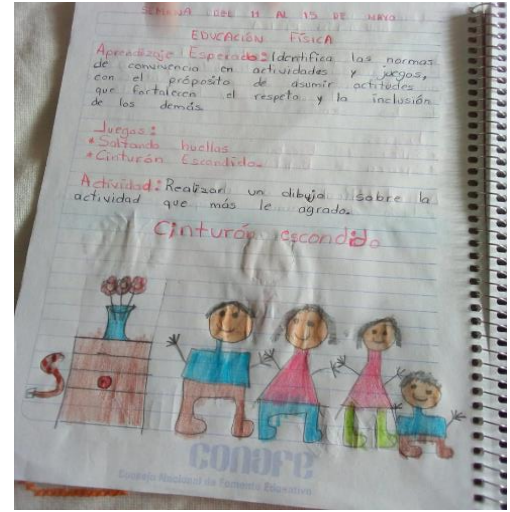 SEMANA DEL 11 AL 15 DE MAYO
EDUCACIÓN FÍSICA
Aprendizaje Esperado: Identifica las normas
de convivencia en actividades y juegos,
con el próposito de asumir actitudes
que fortalecen el respeto y la inclusión
de los demás.
Juegos:
*Saltando huellas
*Cinturón Escondido.
Actividad: Realizan un dibujo sobre la
actividad que más le agrado.
Cinturón escondido
conafe
Consejo Nacional de Fomento Educativo